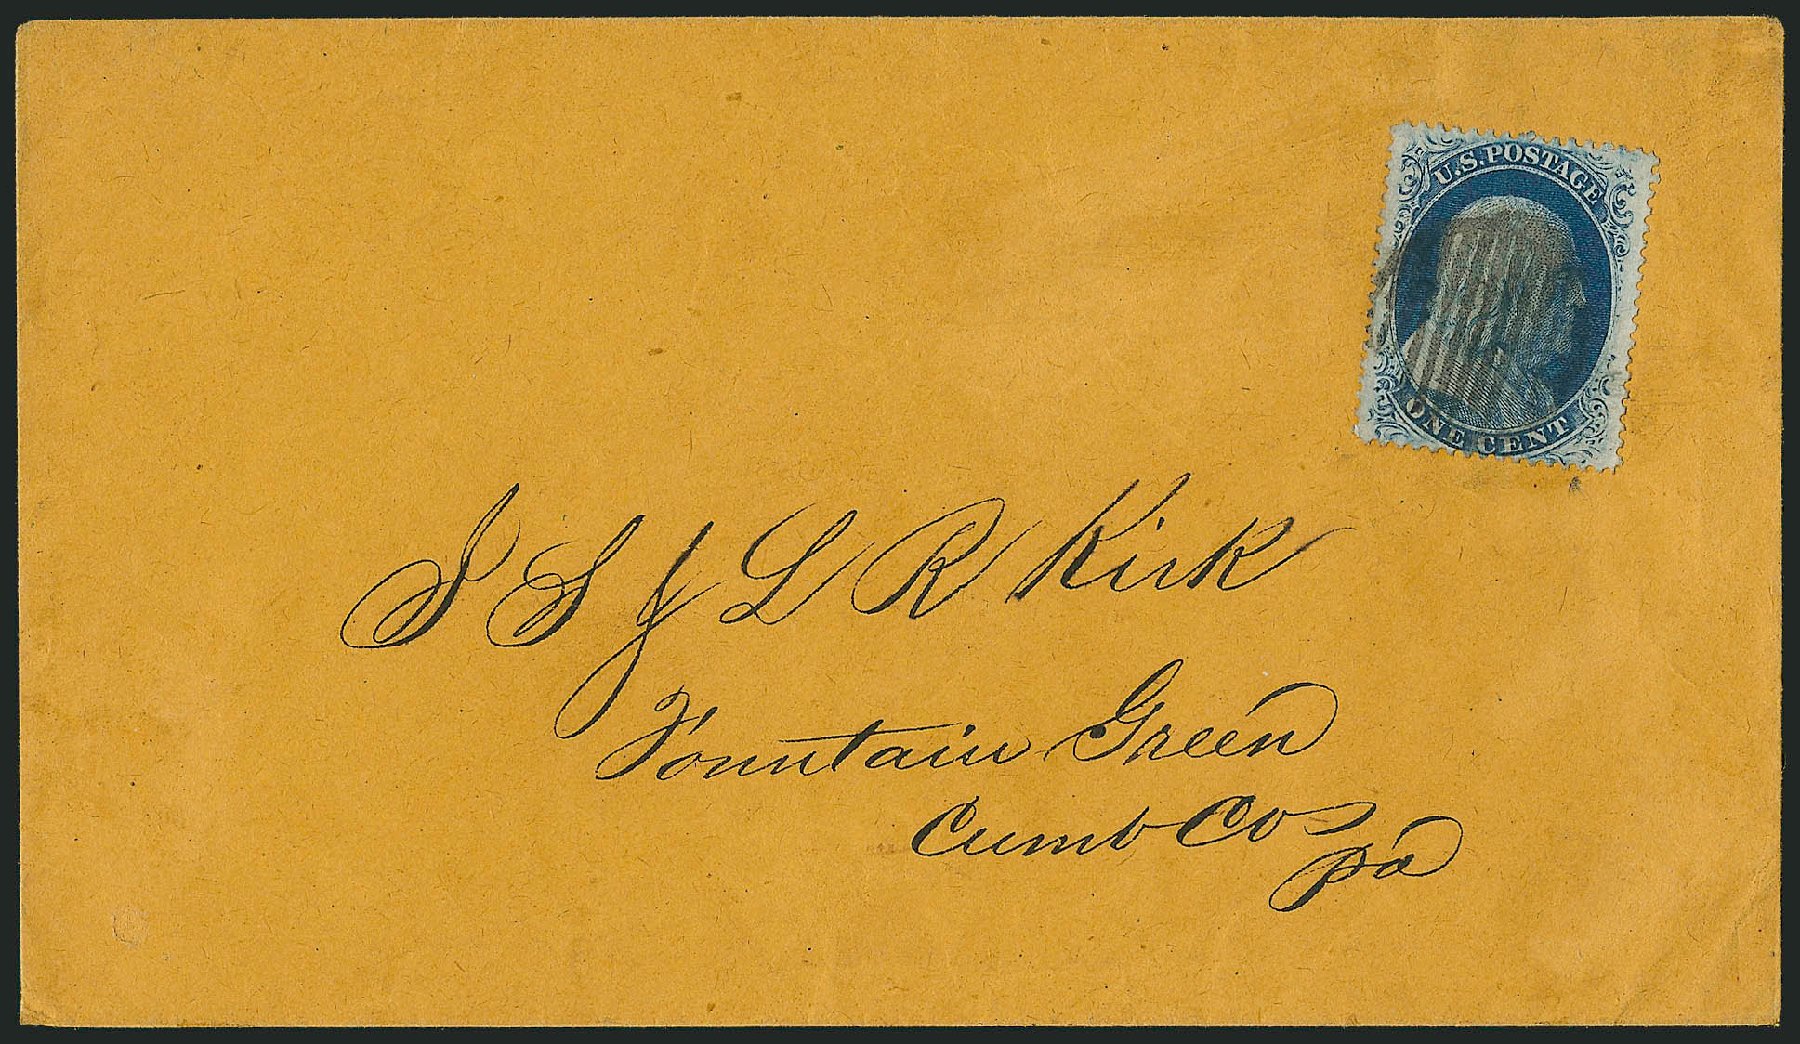 U.S. POSTAGE
ONE CENT
S S & L R Kirk
Fountain Green
Cumb Co
Pa